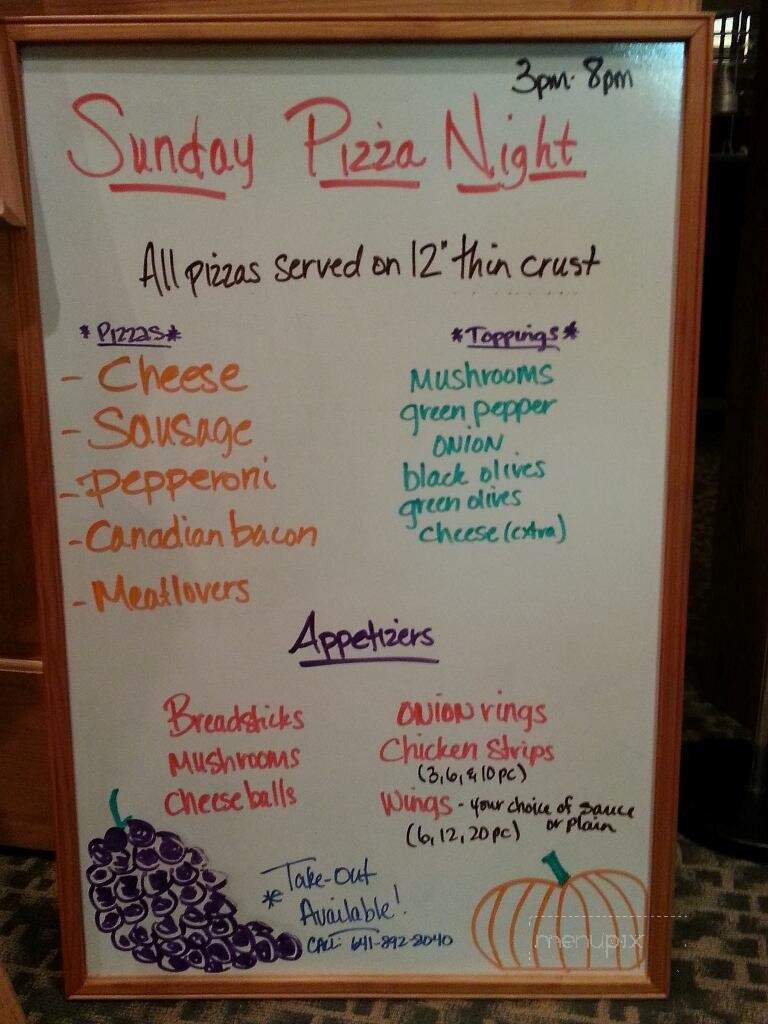 3pm-8pm
Sunday Pizza Night
All pizzas served on 12" thin crust
*Pizzas*
- Cheese
- Sausage
- Pepperoni
- Canadian bacon
- Meatlovers
*Toppings*
Mushrooms
green pepper
ONION
black olives
green olives
cheese (extra)
Appetizers
Breadsticks
Mushrooms
Cheeseballs
ONION rings
Chicken Strips
(3,6,&10pc)
Wings - your choice of sauce
or plain
(6,12,20pc)
*Take-Out
Available!
CALL: 641-892-8040
menupix